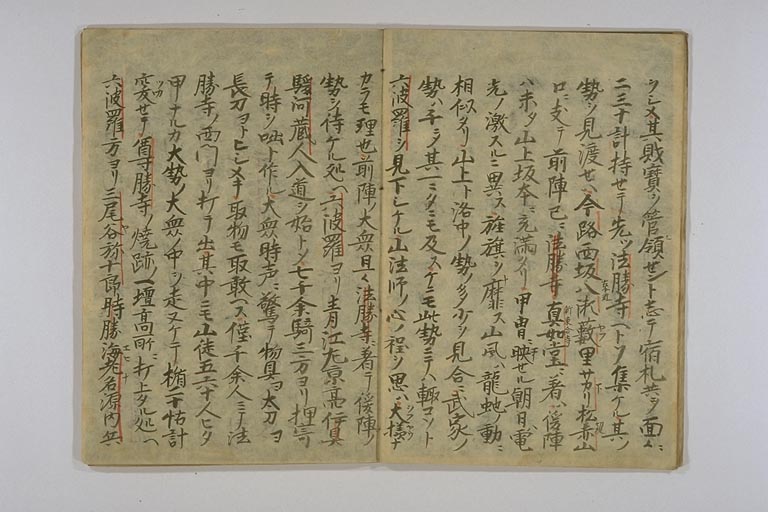 シメ其財寳ヲ管領セント志テ宿札共ヲ面々ニ
二三十計持セテ先ツ法勝寺ヘトソ集ケル其ノ
勢ヲ見渡セハ今路西坂八瀬薮里サカリ松赤山
口ニ支テ前陣已ニ法勝寺真如堂ニ着ハ後陣
ハ未タ山上坂本ニ充満タリ甲冑ニ映セル朝日ハ電
光ノ激スルニ異ス旌旗ヲ靡ス山風ハ龍虵ノ動ニ
相似タリ山上ト洛中ノ勢ノ多少ヲ見合ニ武家ノ
勢ハ十ヲシテ其一ニタニモ及スケニモ此勢ニテハ輙コソト
六波羅ヲ見下シケル山法師ノ心ノ程ヲ思ハ大様ナ
カラモ理也前陣ノ大衆且ク法勝寺ニ着テ後陣ノ
勢ヲ待ケル処ヘ六波羅ヨリ江左京亮行真
駿河蔵人入道ヲ始トメ七千余騎三方ヨリ押寄
テ時ヲ咄ト作ル大衆時声ニ驚テ物具ヨ太刀ヨ
長刀ヨトヒシメキテ取物モ取敢ヘス僅千余人ニテ法
勝寺ノ西門ヨリ打テ出其中ニモ山徒五六十人ヒタ
甲ナルカ大勢ノ大衆ノ中ヲ走ヌケテ楯二十帖計
セテ勝寺ノ焼跡ノ一壇高所ニ打上タル処ヘ
六波羅方ヨリ三尾谷弥十郎時勝海老名源内兵